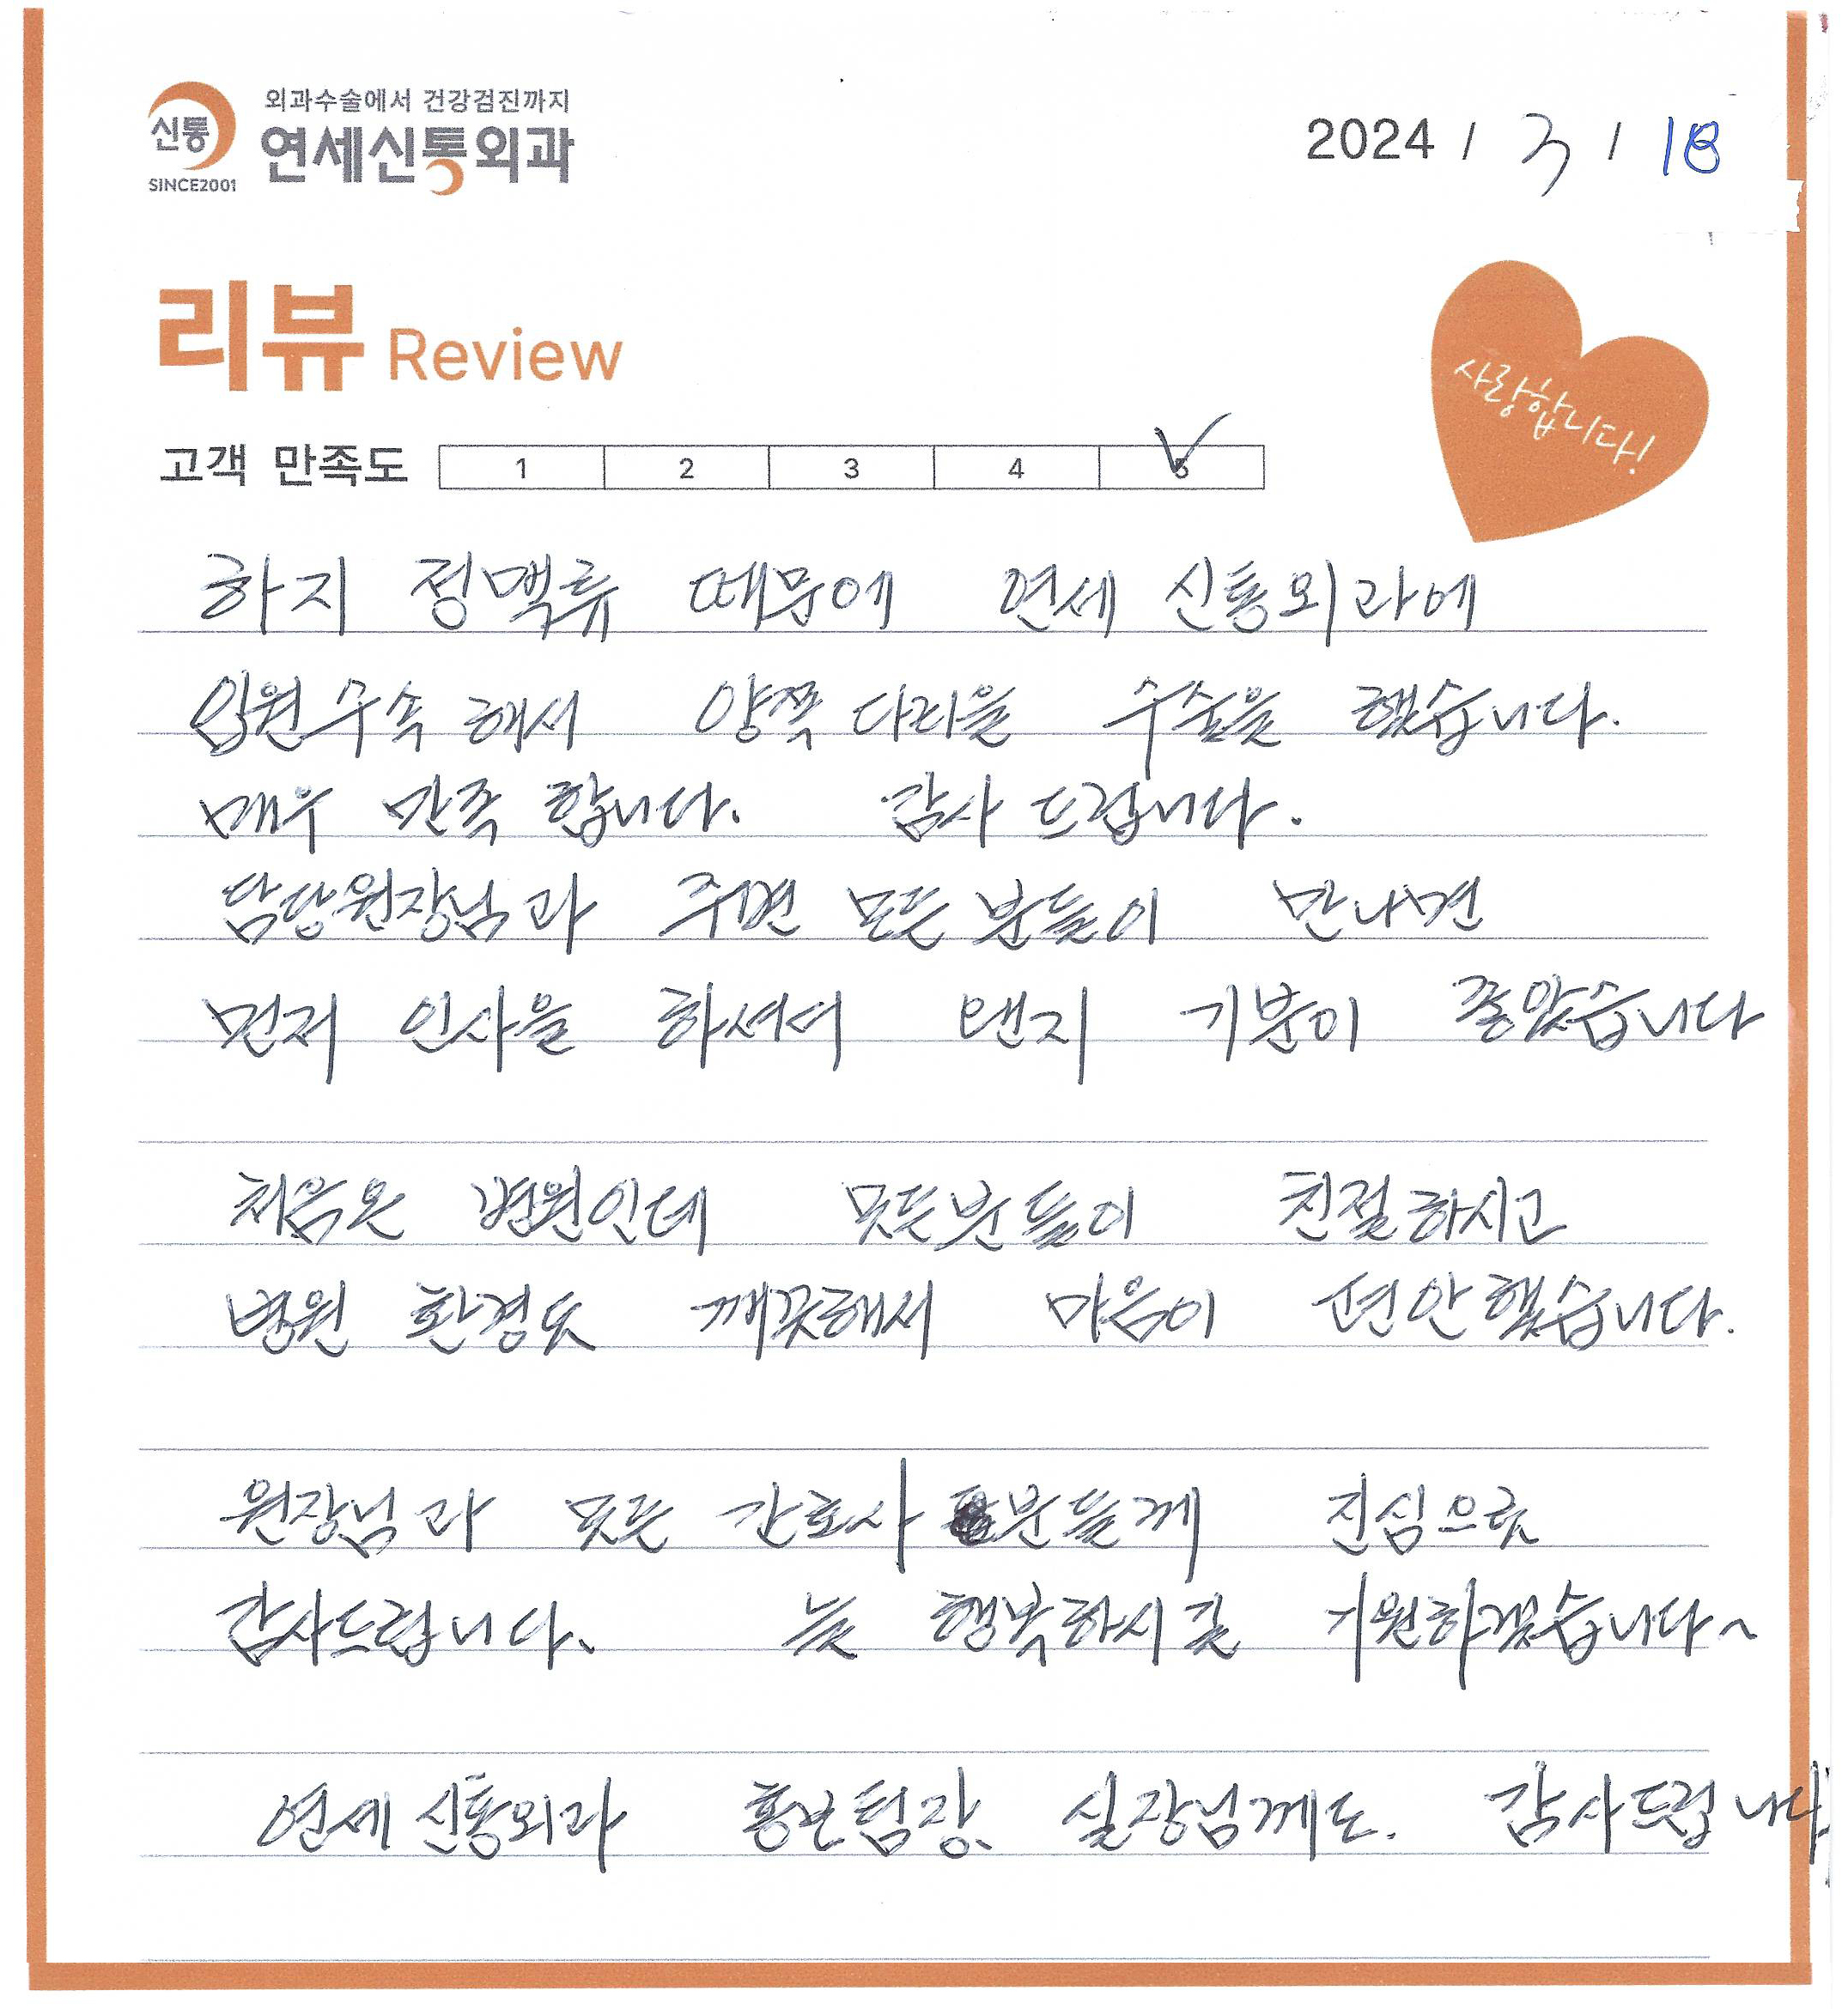 외과수술에서 건강검진까지
신통
연세신통외과
SINCE2001
2024 / 3 / 18
리뷰 Review
사랑합니다!
고객 만족도 1 2 3 4 5
하지 정맥류 때문에 연세 신통외과에
입원수속 해서 양쪽 다리을 수술을 했습니다.
매우 만족 합니다. 감사 드립니다.
담당원장님과 주변 모든 분들이 만나면
먼저 인사을 하셔서 왠지 기분이 좋았습니다
처음온 병원인데 모든분들이 친절하시고
병원 환경도 깨끗해서 마음이 편안했습니다.
원장님과 모든 간호사 분들께 진심으로
감사드립니다. 늘 행복하시길 기원하겠습니다~
연세신통외과 홍보팀장, 실장님께도. 감사드립니다